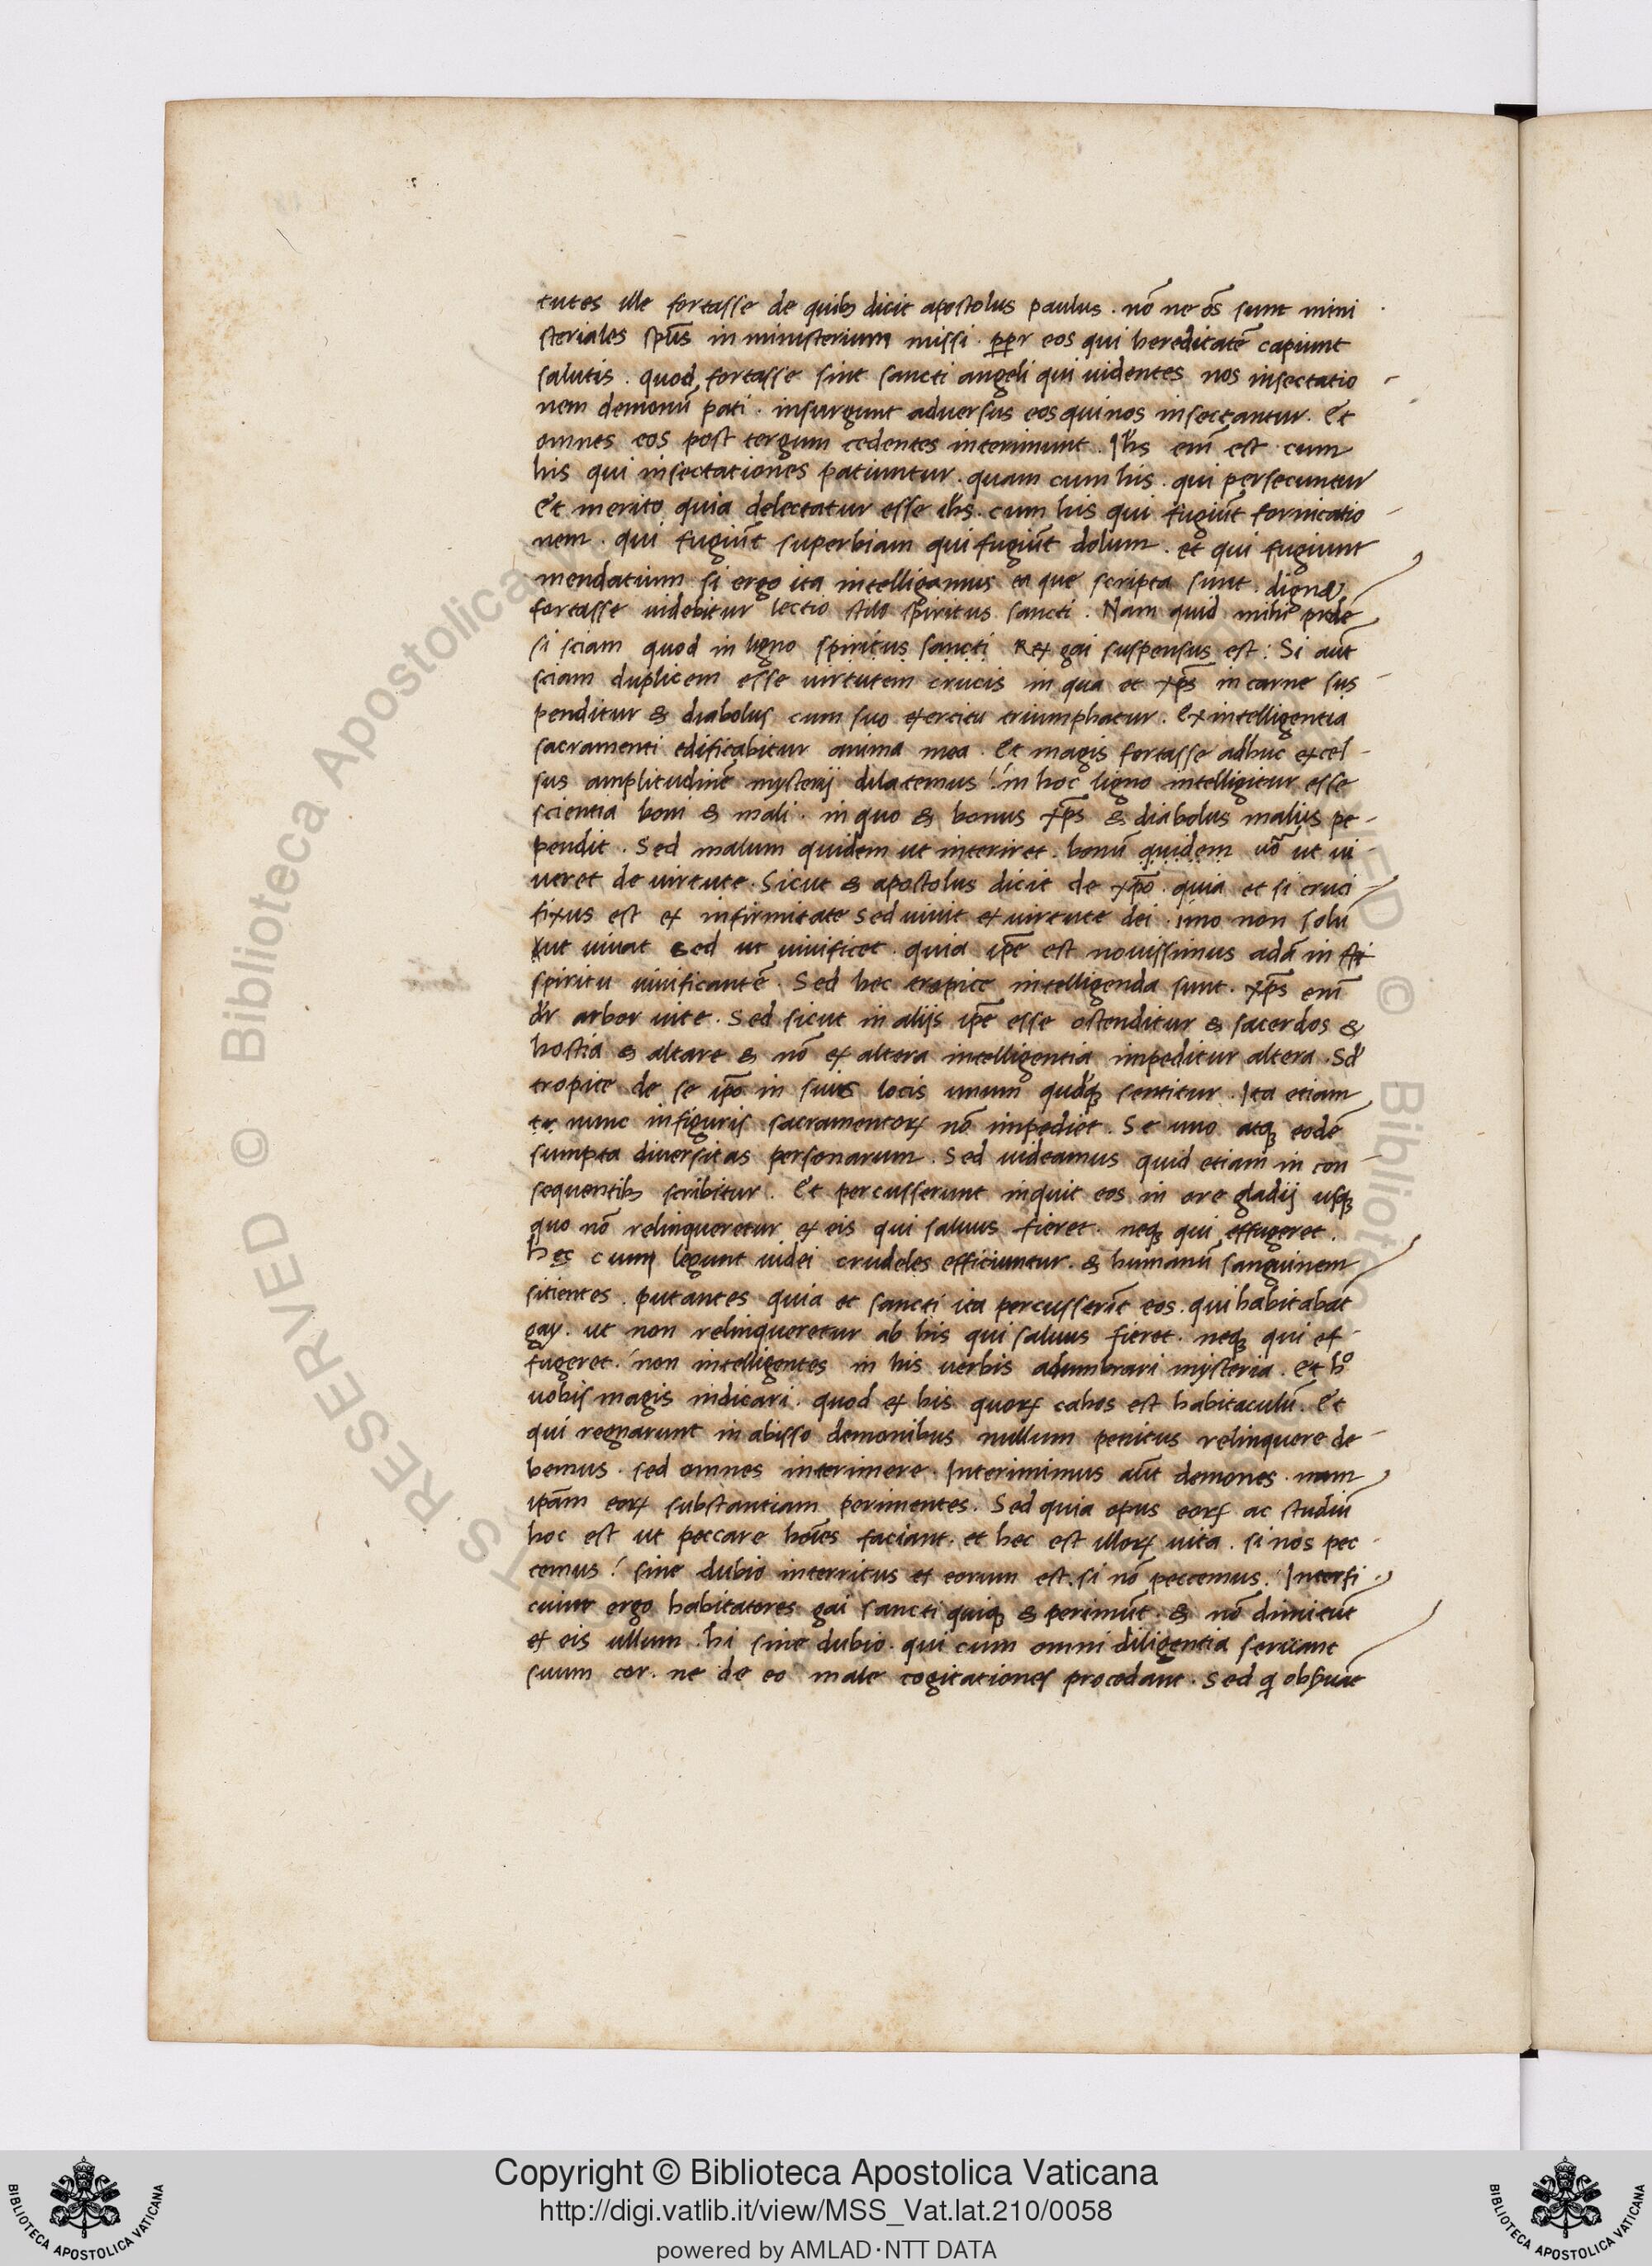 tutes ille fortasse de quibꝫ dicit apostolus paulus . nō ne oēs sunt mini
steriales spūs in ministerium missi . ꝓpr eos qui hereditatē capiunt
salutis . quod fortasse sint sancti angeli qui uidentes nos insectatio
nem demonū pati . insurgunt aduersus eos qui nos insectantur . Et
omnes eos post tergum cedentes interimunt . Ihs eni est cum
his qui insectationes patiuntur . quam cum his . qui persecuntur
Et merito quia delectatur esse ihs . cum his qui fugiūt fornicatio
nem . qui fugiūt superbiam qui fugiūt dolum . et qui fugiunt
mendatium si ergo ita intelligamus ea que scripta sunt . digna
fortasse uidebitur lectio stilo spiritus sancti . Nam quid mihi prodē
si sciam quod in ligno spiritus sancti Rex gai suspensus est : Si aut
sciam duplicem esse uirtutem crucis in qua et xps in carne sus
penditur & diabolus cum suo exercitu triumphatur . Ex intelligentia
sacramenti edificabitur anima mea . Et magis fortasse adhuc excel
sus amplitudinē mysterij dilatemus ! in hoc ligno intelligitur esse
scientia boni & mali . in quo & bonus xps & diabolus malus pe
pendit . Sed malum quidem ut interiret . bonū quidem uō ut ui
ueret de uirtute . Sicut & apostolus dicit de xpō . quia et si cruci
fixus est ex infirmitate sed uiuit ex uirtute dei . imo non solū
ut uiuat sed ut uiuificet . quia ipē est nouissimus adā in
spiritu uiuificantē . Sed hec tropice intelligenda sunt . xps eni
dr arbor uite . Sed sicut in alijs ipē esse ostenditur & sacerdos &
hostia & altare & nō ex altera intelligentia impeditur altera . Sd
tropice de se ipō in suis locis unum quodqꝫ sentitur . Ita etiam
nunc in figuris sacramentoꝝ nō impediet . Se uno atqꝫ eodē
sumpta diuersitas personarum . Sed uideamus quid etiam in con
sequentibꝫ scribitur . Et percusserunt inquit eos in ore gladij usqꝫ
quo nō relinqueretur ex eis qui saluus fieret . neqꝫ qui effugeret .
Hec cum legunt iudei crudeles efficiuntur . & humanū sanguinem
sitientes . putantes quia et sancti ita percusserīt eos . qui habitabāt
gay . ut non relinqueretur ab his qui saluus fieret . neqꝫ qui ef
fugeret . non intelligentes in his uerbis adumbrari mysteria . Et ho
uobis magis indicari . quod ex his quoꝝ cahos est habitaculū . Et
qui regnarunt in abisso demonibus nullum penitus relinquere de
bemus . sed omnes interimere . Interimimus aūt demones . nam
ipam eoꝝ substantiam perimentes . Sed quia opus eoꝝ ac studiū
hoc est ut peccare hoīes faciant . et hec est illoꝝ uita . si nos pec
cemus ! sine dubio interritus et eorum est . si nō peccemus . Interfi
ciunt ergo habitatores gai sancti quiqꝫ & perimūt . & nō dimitūt
ex eis ullum . hi sine dubio . qui cum omni diligentia seruant
suum cor . ne de eo male cogitationes procedant . Sed q obseruāt
Copyright © Biblioteca Apostolica Vaticana
http://digi.vatlib.it/view/MSS_Vat.lat.210/0058
powered by AMLAD·NTT DATA
BIBLIOTECA APOSTOLICA VATICANA
BIBLIOTECA APOSTOLICA VATICANA